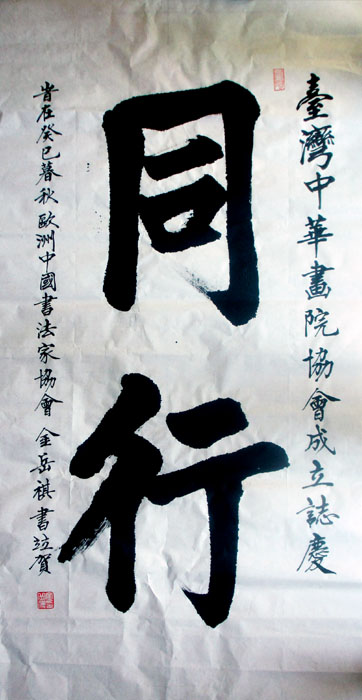 臺灣中華畫院協會成立誌慶
同行
旹在癸巳暮秋歐洲中國書法家協會金岳祺書竝賀